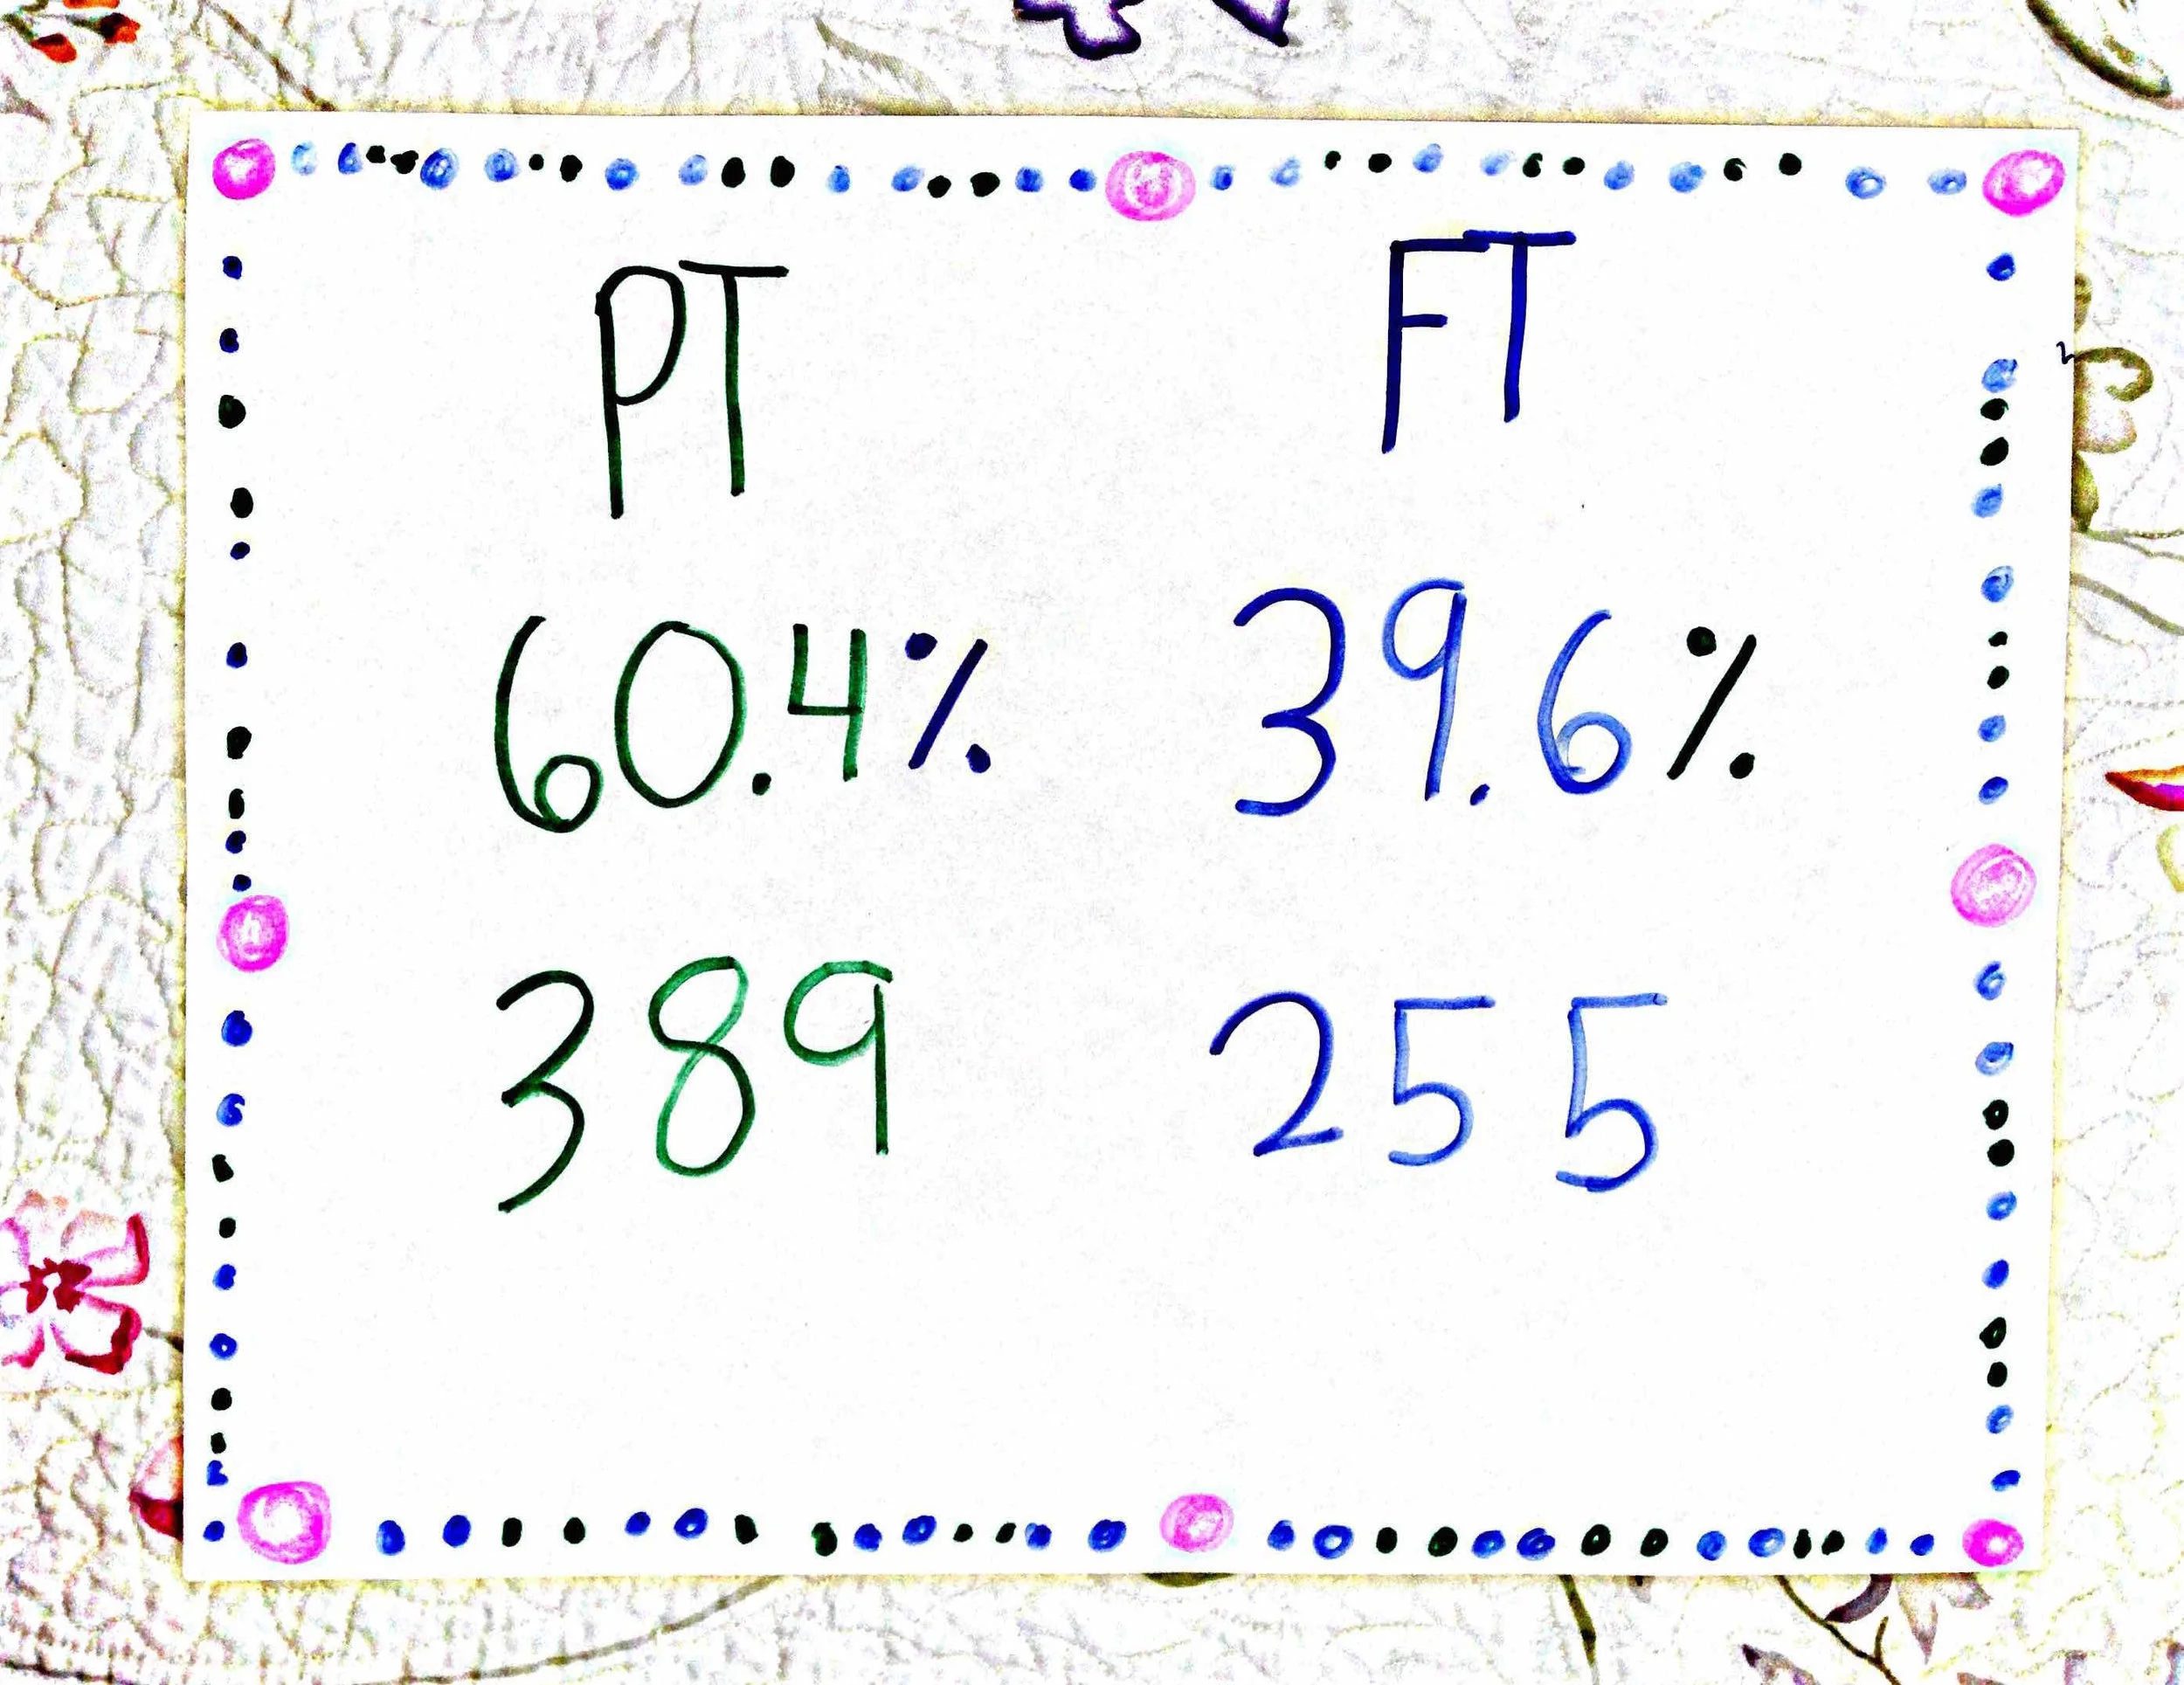 PT FT
60.4% 39.6%
389 255